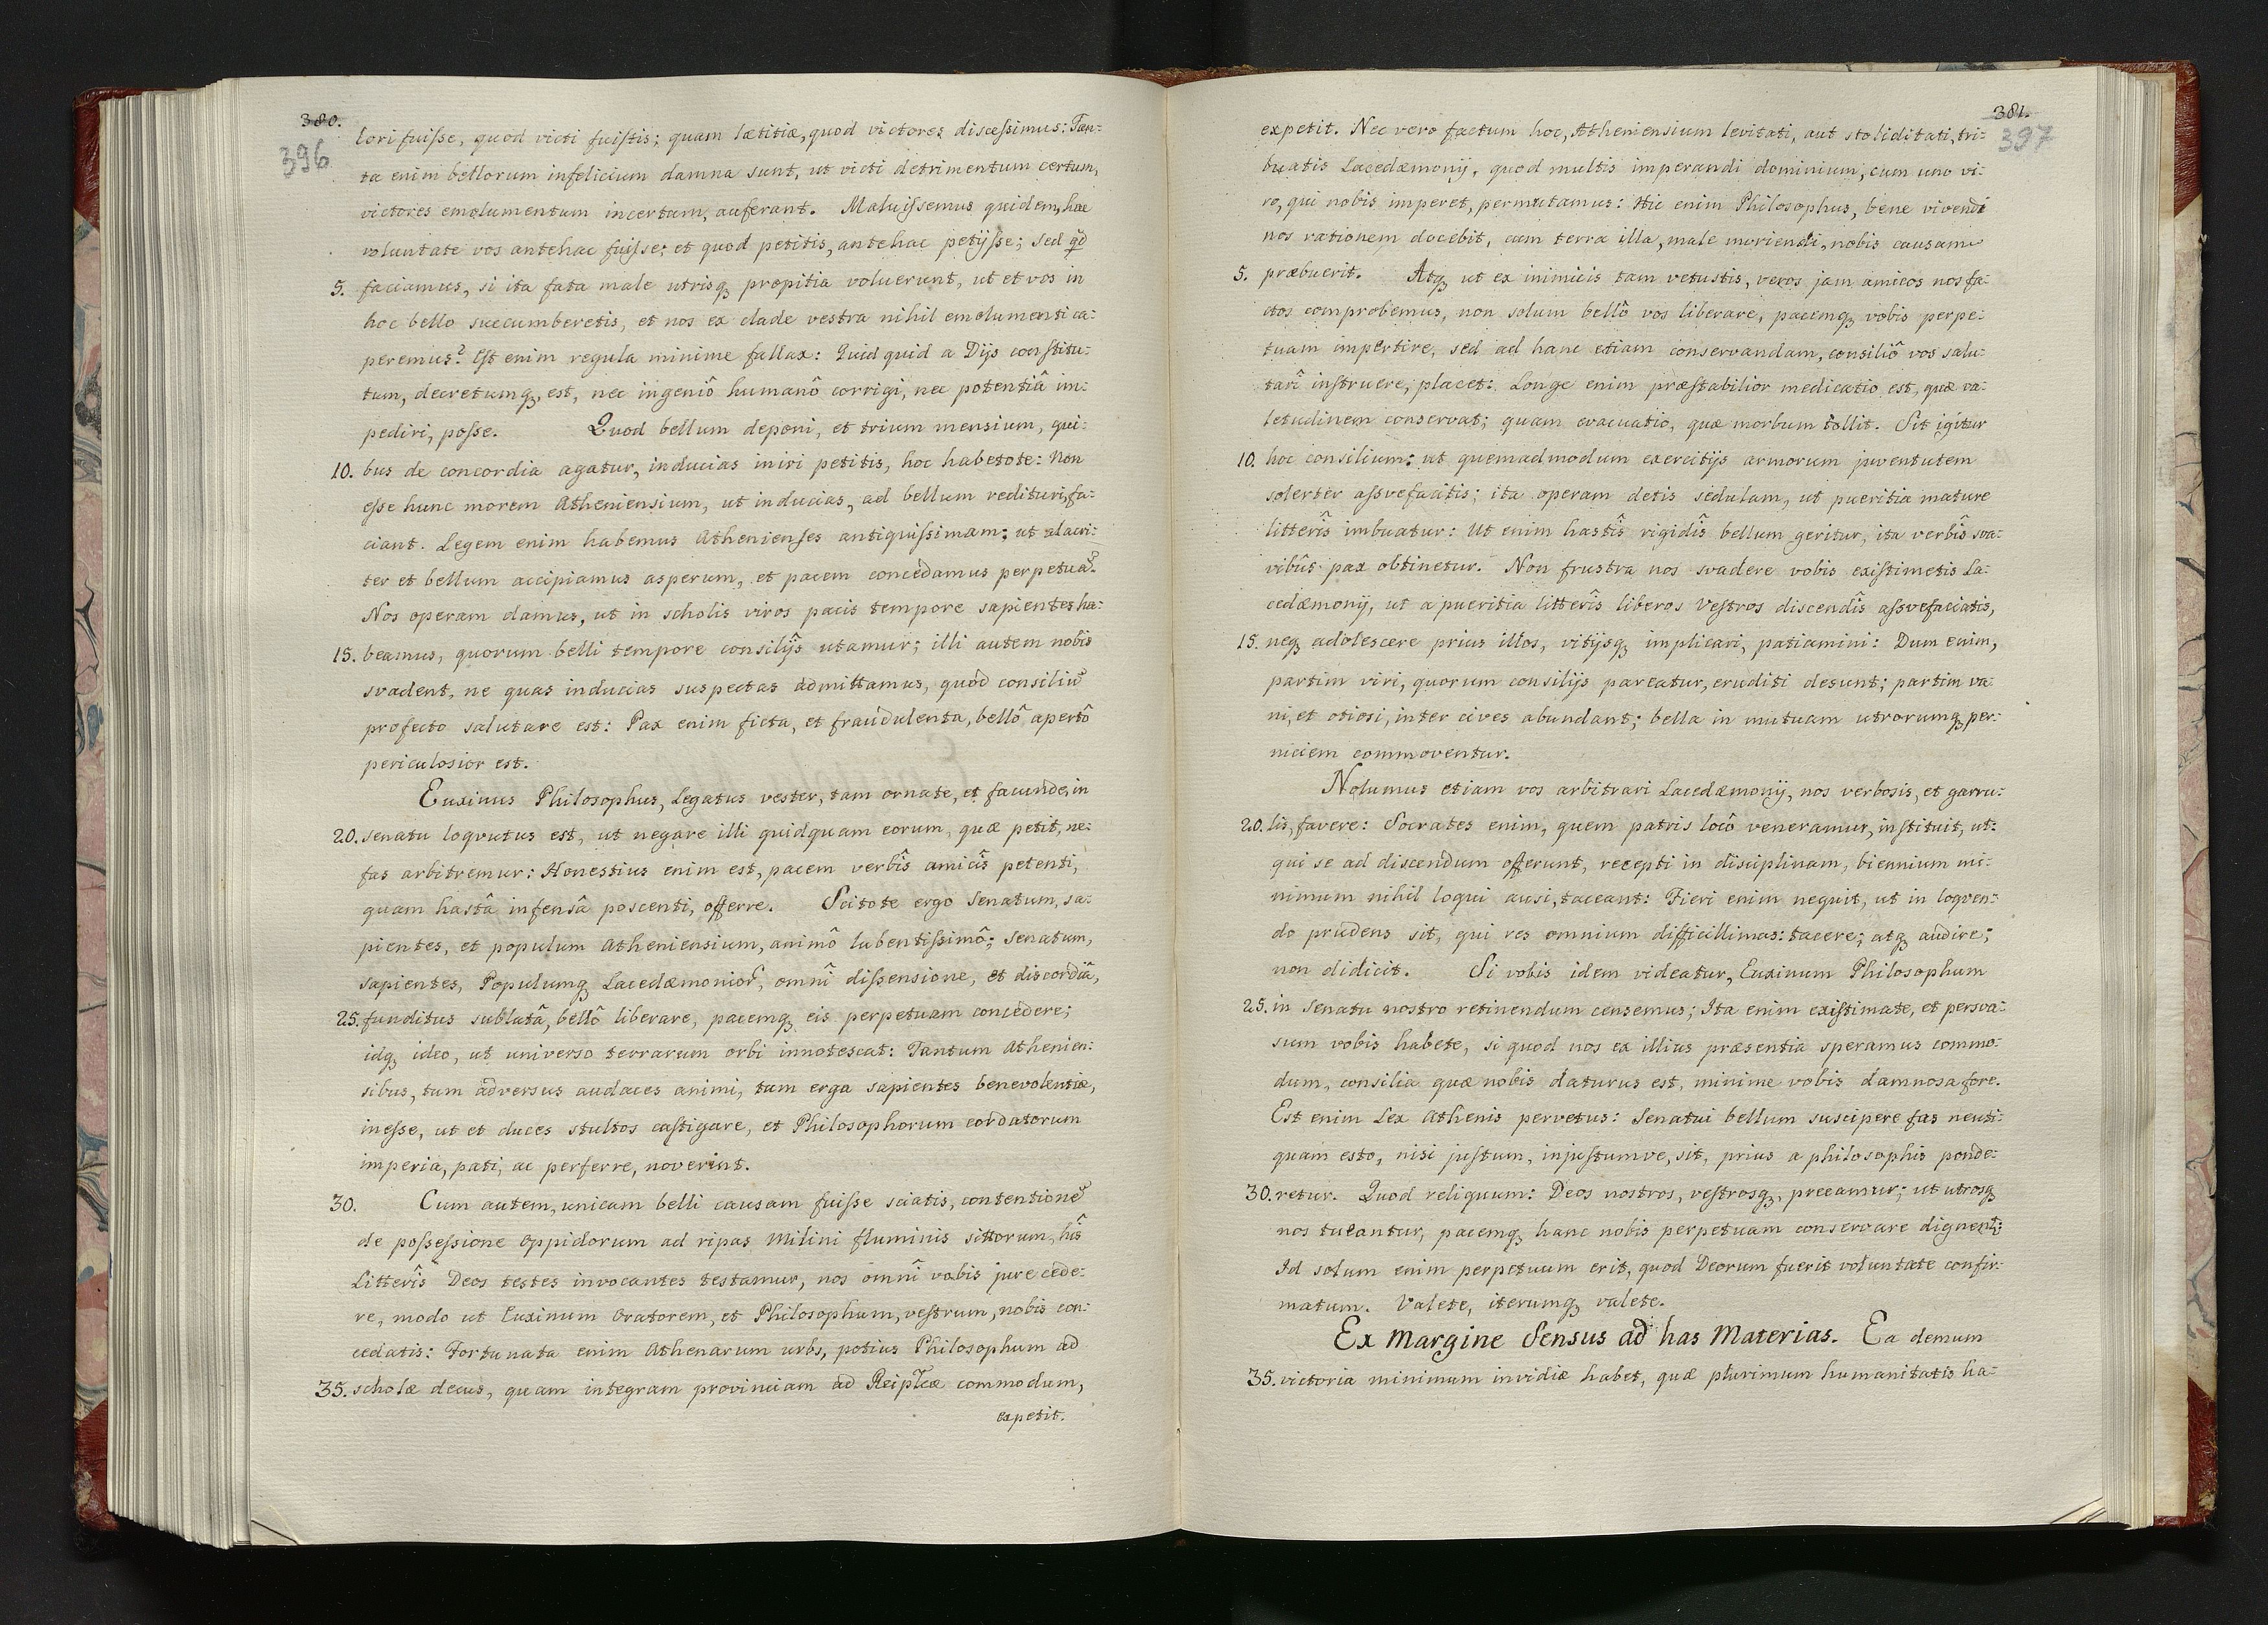 380.
396
lori fuisse, quod victi fuistis; quam lætitiæ, quod victores discessimus: Tan:
ta enim bellorum infelicium damna sunt, ut victi detrimentum certum,
victores emolumentum incertum, auferant. Maluissemus quidem, hac
voluntate vos antehac fuisse; et quod petitis, antehac petijsse; sed qd
5. faciamus, si ita fata male utrisq propitia voluerunt, ut et vos in
hoc bello succumberetis, et nos ex clade vestra nihil emolumenti ca:
peremus? Est enim regula minime fallax: Quidquid a Dijs constitu:
tum, decretumq, est, nec ingeniô humanô corrigi, nec potentiâ im:
pediri, posse. Quod bellum deponi, et trium mensium, qui:
10. bus de concordia agatur, inducias iniri petitis, hoc habetote: Non
esse hunc morem Atheniensium, ut inducias, ad bellum redituri, fa:
ciant. Legem enim habemus Athenienses antiquissimam; ut alacri:
ter et bellum accipiamus asperum, et pacem concedamus perpetuã.
Nos operam damus, ut in scholis viros pacis tempore sapientes ha:
15. beamus, quorum belli tempore consilijs utamur; illi autem nobis
svadent, ne quas inducias suspectas admittamus, quod consiliũ
profecto salutare est: Pax enim ficta, et fraudulenta, bellô apertô
periculosior est.
Euxinus Philosophus, Legatus vester, tam ornate, et facunde, in
20. senatu loqvutus est, ut negare illi quidquam eorum, quæ petit, ne:
fas arbitremur: Honestius enim est, pacem verbîs amicîs petenti,
quam hastâ infensâ poscenti, offerre. Scitote ergo Senatum, sa:
pientes, et populum Atheniensium, animô lubentissimô; Senatum,
sapientes, Populumq Lacedæmonior, omnî dissensione, et discordiâ,
25. funditus sublatâ, bellô liberare, pacemq eis perpetuam concedere;
idq ideo, ut universo terrarum orbi innotescat: Tantum Athenien:
sibus, tum adversus audaces animi, tum erga sapientes benevolentiæ,
inesse, ut et duces stultos castigare, et Philosophorum cordatorum
imperia, pati, ac perferre, noverint.
30. Cum autem, unicam belli causam fuisse sciatis, contentionẽ
de possessione oppidorum ad ripas Milini fluminis sittorum, hîs
Litterîs Deos testes invocantes testamur, nos omnî vobis jure cede:
re, modo ut Euxinum Oratorem, et Philosophum, vestrum, nobis con:
cedatis: Fortunata enim Athenarum urbs, potius Philosophum ad
35. scholæ decus, quam integram provinciam ad Reiplcæ commodum,
expetit.
381.
397
expetit. Nec vero factum hoc, Atheniensium levitati, aut stoliditati, tri:
buatis Lacedæmonij, quod multis imperandi dominium, cum uno vi:
ro, qui nobis imperet, permutamus: Hic enim Philosophus, bene vivendi
nos rationem docebit, cum terra illa, male moriendi, nobis causam
5. præbuerit. Atq ut ex inimicis tam vetustis, veros jam amicos nos fa:
ctos comprobemus, non solum bellô vos liberare, pacemq vobis perpe:
tuam impertire, sed ad hanc etiam conservandam, consiliô vos salu:
tarî instruere, placet: Longe enim præstabilior medicatio est, quæ va:
letudinem conservat; quam evacuatio, quæ morbum tollit. Sit igitur
10. hoc consilium: ut quemadmodum exercitijs armorum juventutem
solerter assvefacitis; ita operam detis sedulam, ut pueritia mature
litterîs imbuatur: Ut enim hastîs rigidîs bellum geritur, ita verbîs sva:
vibûs pax obtinetur. Non frustra nos svadere vobis existimetis La:
cedæmonij, ut a pueritia litterîs liberos Vestros discendîs assvefaciatis,
15. neq adolescere prius illos, vitijsq implicari, patiamini: Dum enim,
partim viri, quorum consilijs pareatur, eruditi desunt; partim va:
ni, et otiosi, inter cives abundant; bella in mutuam utrorumq per:
niciem commoventur.
Nolumus etiam vos arbitrari Lacedæmonij, nos verbosis, et garru:
20. lis, favere: Socrates enim, quem patris locô veneramur, instituit, ut:
qui se ad discendum offerunt, recepti in disciplinam, biennium mi:
nimum nihil loqui ausi, taceant: Fieri enim nequit, ut in loqven:
do prudens sit, qui res omnium difficillimas: tacere; atq audire;
non didicit. Si vobis idem videatur, Euxinum Philosophum
25. in Senatu nostro retinendum censemus; Ita enim existimate, et persva:
sum vobis habete, si quod nos ex illius præsentia speramus commo:
dum, consilia quæ nobis daturus est, minime vobis damnosa fore.
Est enim Lex Athenis pervetus: Senatui bellum suscipere fas neuti:
quam esto, nisi justum, injustumve, sit, prius a philosophis ponde:
30. retur. Quod reliquum: Deos nostros, vestrosq, precamur; ut utrosq
nos tueantur, pacemq hanc nobis perpetuam conservare dignent;
Id solum enim perpetuum erit, quod Deorum fuerit voluntate confir:
matum. Valete, iterumq valete.
Ex Margine Sensus ad has Materias. Ea demum
35. victoria minimum invidiæ habet, quæ plurimum humanitatis ha: